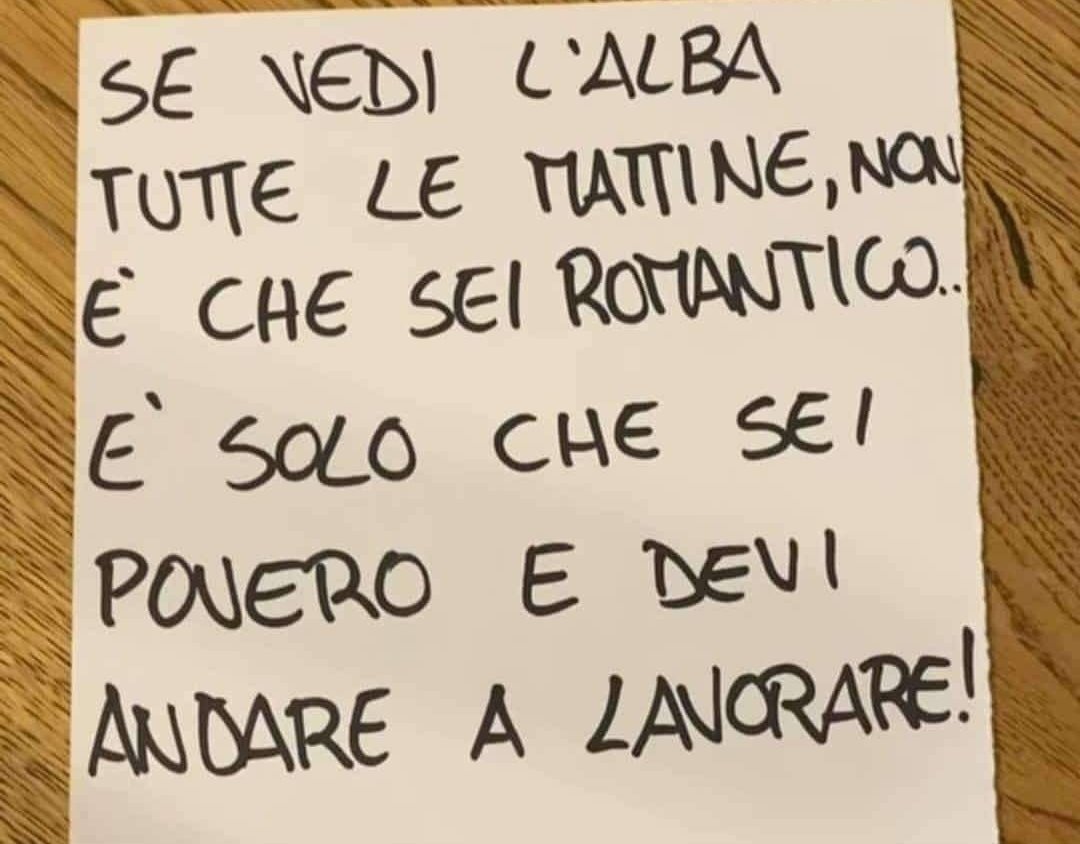 SE VEDI L'ALBA
TUTTE LE MATTINE, NON
E' CHE SEI ROMANTICO..
E' SOLO CHE SEI
POVERO E DEVI
ANDARE A LAVORARE!